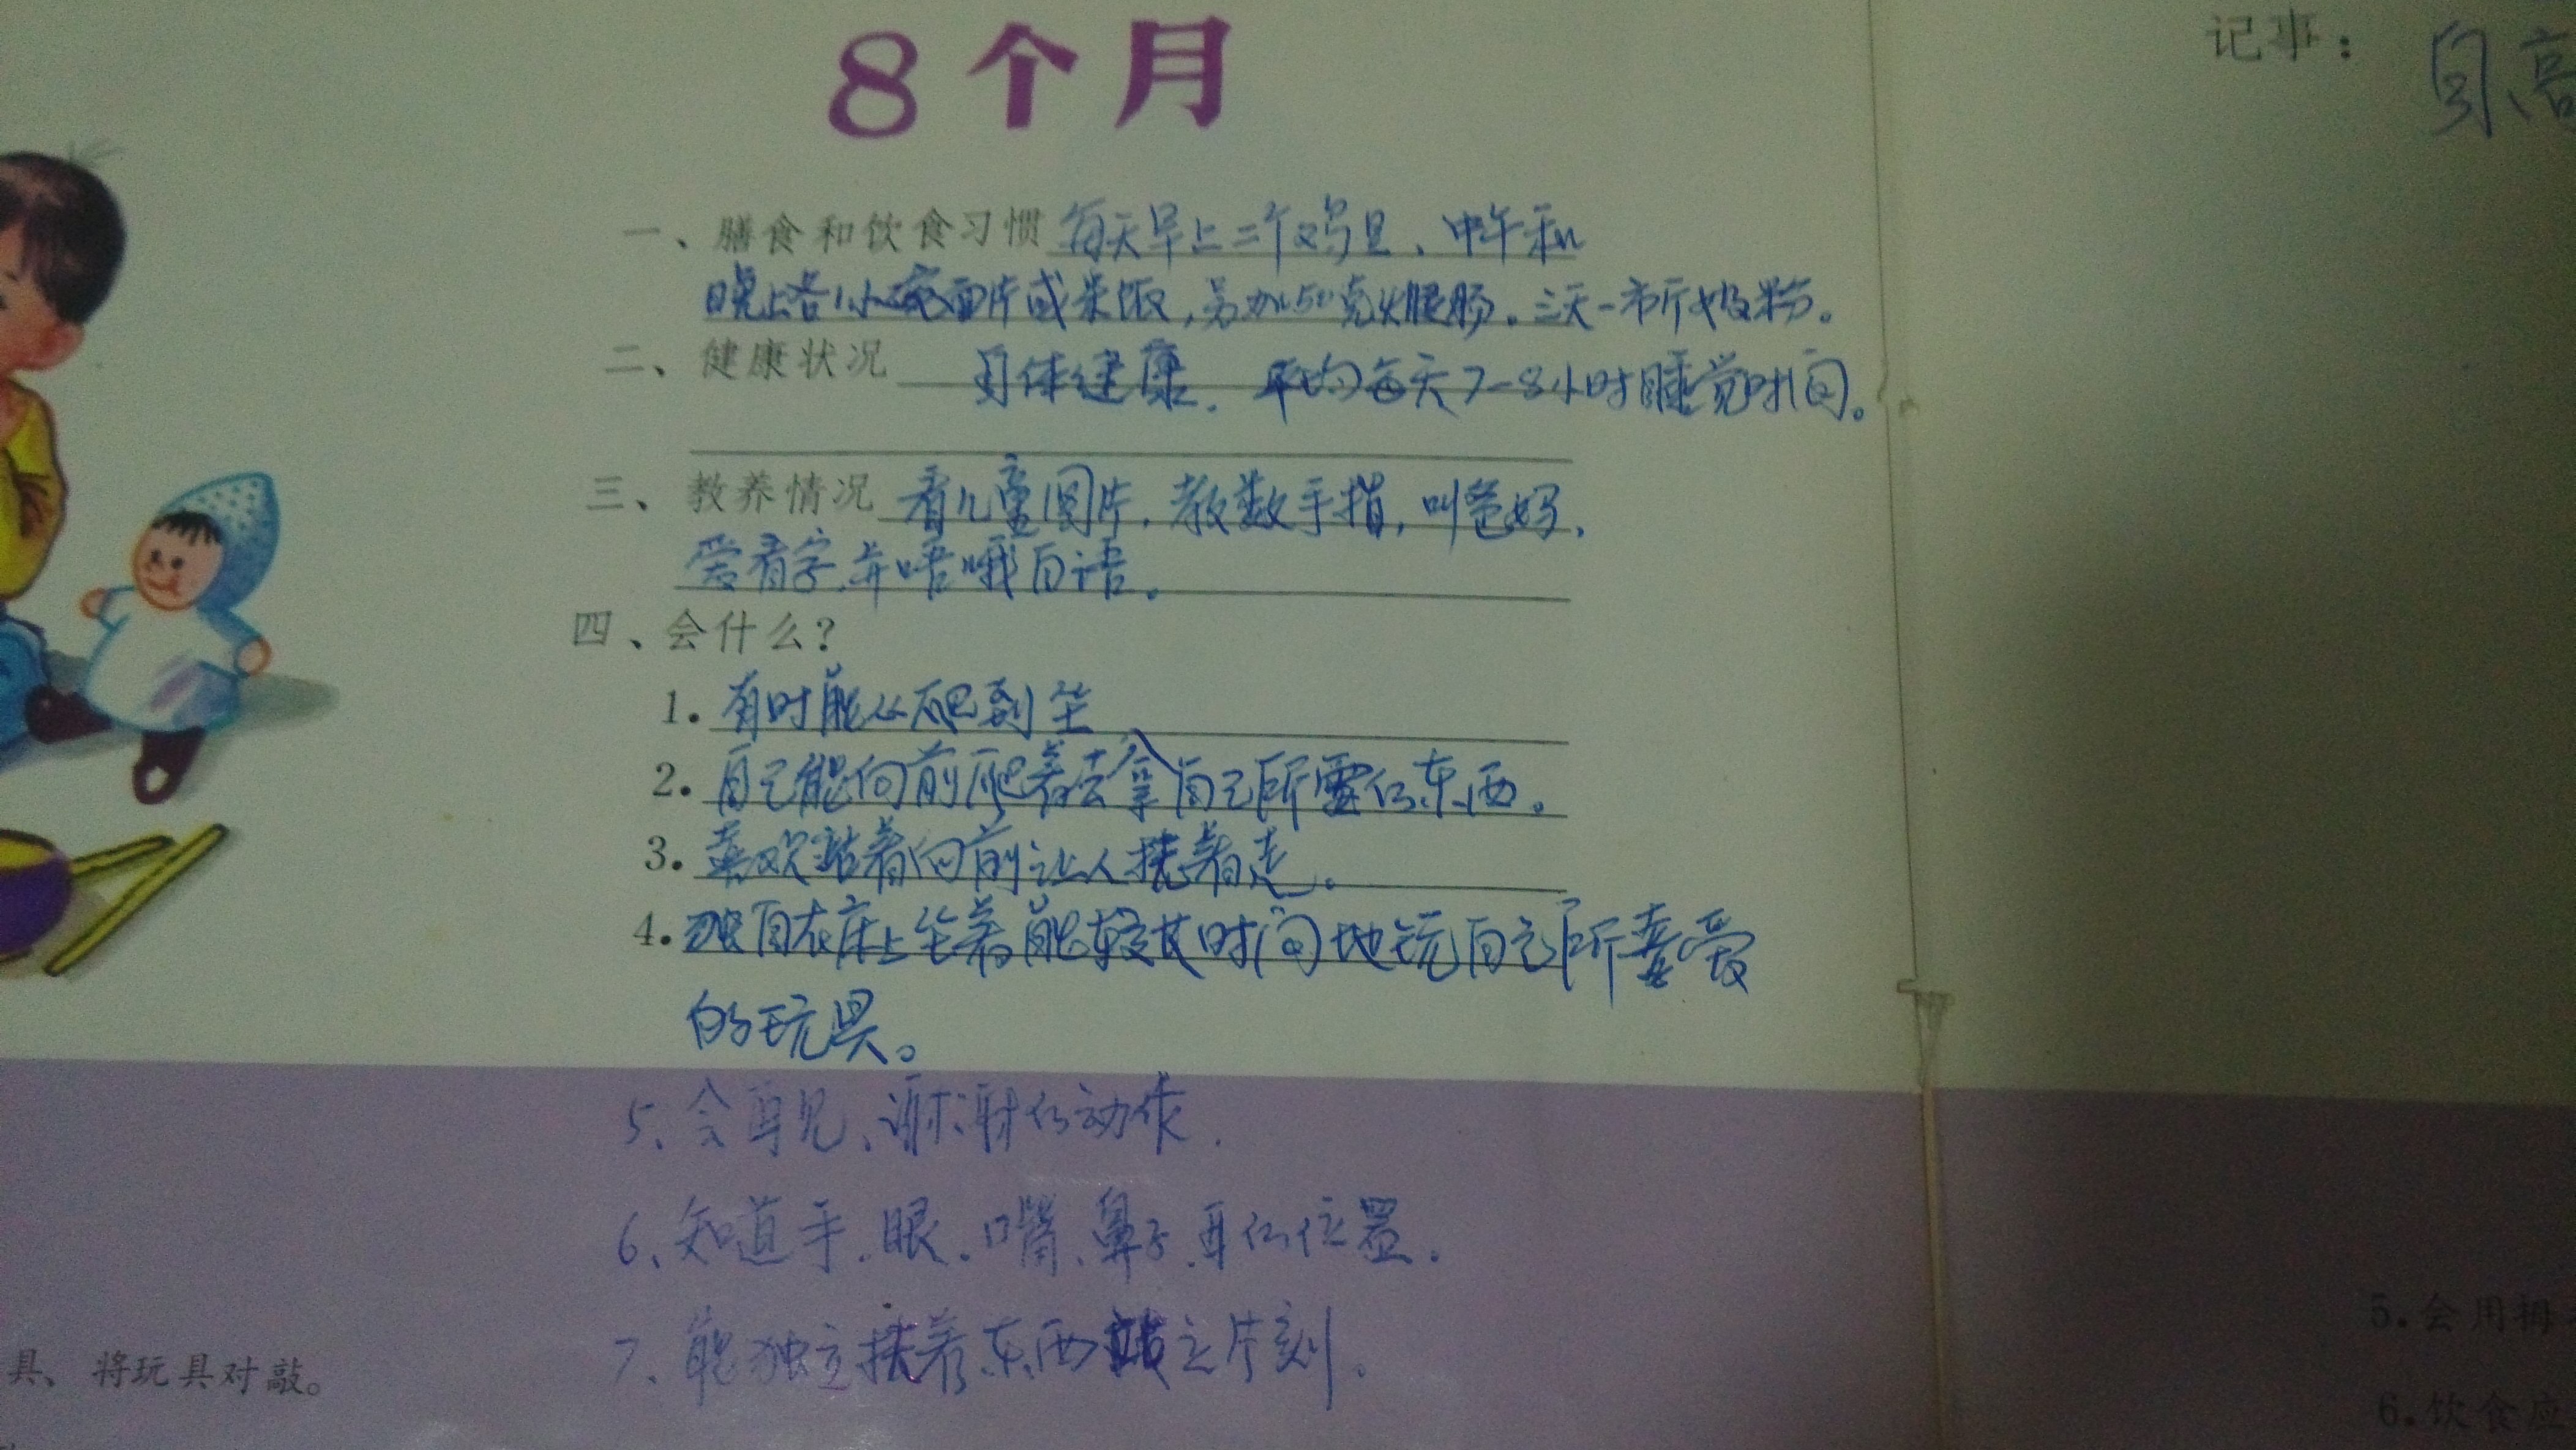 8个月
一、膳食和饮食习惯 每天早上二个鸡旦、中午和
晚上各1小碗面片或米饭,另加50克火腿肠。三天一市斤奶粉。
二、健康状况 身体健康. 平均每天7-8小时睡觉时间。
三、教养情况 看儿童图片.教数手指,叫爸妈.
爱看字.并唔哦自语。
四、会什么?
1. 有时能从爬到坐
2. 自己能向前爬着去拿自己所需的东西。
3. 喜欢站着向前让人扶着走。
4. 独自在床上坐着能较长时间地玩自己所喜爱
的玩具。
5、会再见、谢谢的动作.
6、知道手.眼.嘴、鼻子.耳的位置.
7、能独立扶着东西站立片刻。
具、将玩具对敲。
记事: 身高
5.会用拇
6.饮食应